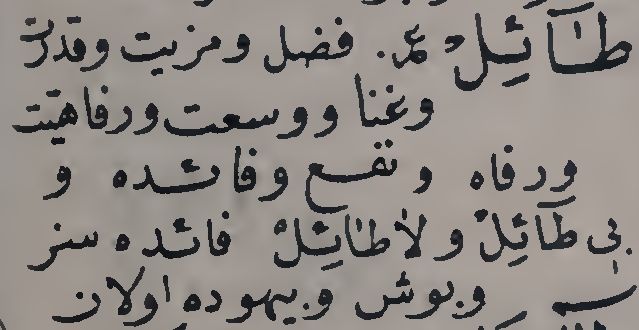 طَآئِلْ عم. فضل ومزيت وقدرت
وغنا ووسعت ورفاهيت
ورفاه ونفع وفائده و
بى طَآئِلْ ولاطَائِلْ فائده سز
وبوش وبيهوده اولان